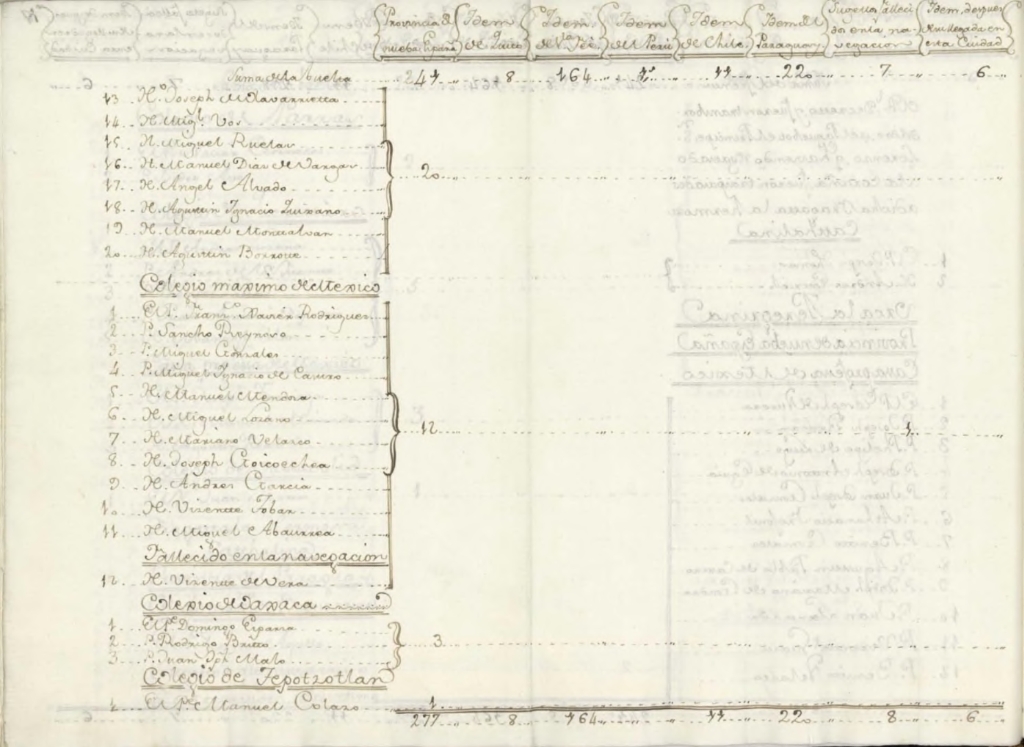 Provincia de nueba España
Idem de Quito
Idem de Sta. Fé
Idem del Perú
Idem de Chile
Idem del Paraguay
Sugetos fallecido en la navegacion
Idem despues de su llegada en esta Ciudad
Suma de la buelta 241 8 164 1 11 22 7 6
13 H.o Joseph de Navarrieta
14 H. Migl. Vos
15 H. Miguel Ruelas
16 H. Manuel Diaz de Vargas
17 H. Angel Alvado 20
18 H. Agustin Ignacio Quixano
19 H. Manuel Montalvan
20 H. Agustin Borrote
Colegio maximo de Mexico
1 El P. Franco. Xavier Rodriguez
2 P. Sancho Reynoso
3 P. Miguel Gonzales
4 P. Miguel Ignacio de Castro
5 H. Manuel Mendoza
6 H. Miguel Lozano
7 H. Mariano Velasco 12 1
8 H. Joseph Goicoechea
9 H. Andres Garcia
10 H. Vizente Tobar
11 H. Miguel Abaurrea
Fallecido en la navegacion
12 H. Vizente de Vera
Colexio de Oaxaca
1 El Pe. Domingo Esparsa
2 P. Rodrigo Brito 3
3 P. Juan Jph Malo
Colegio de Tepotzotlan
1 El Pe. Manuel Colazo 1
277 8 164 11 22 8 6